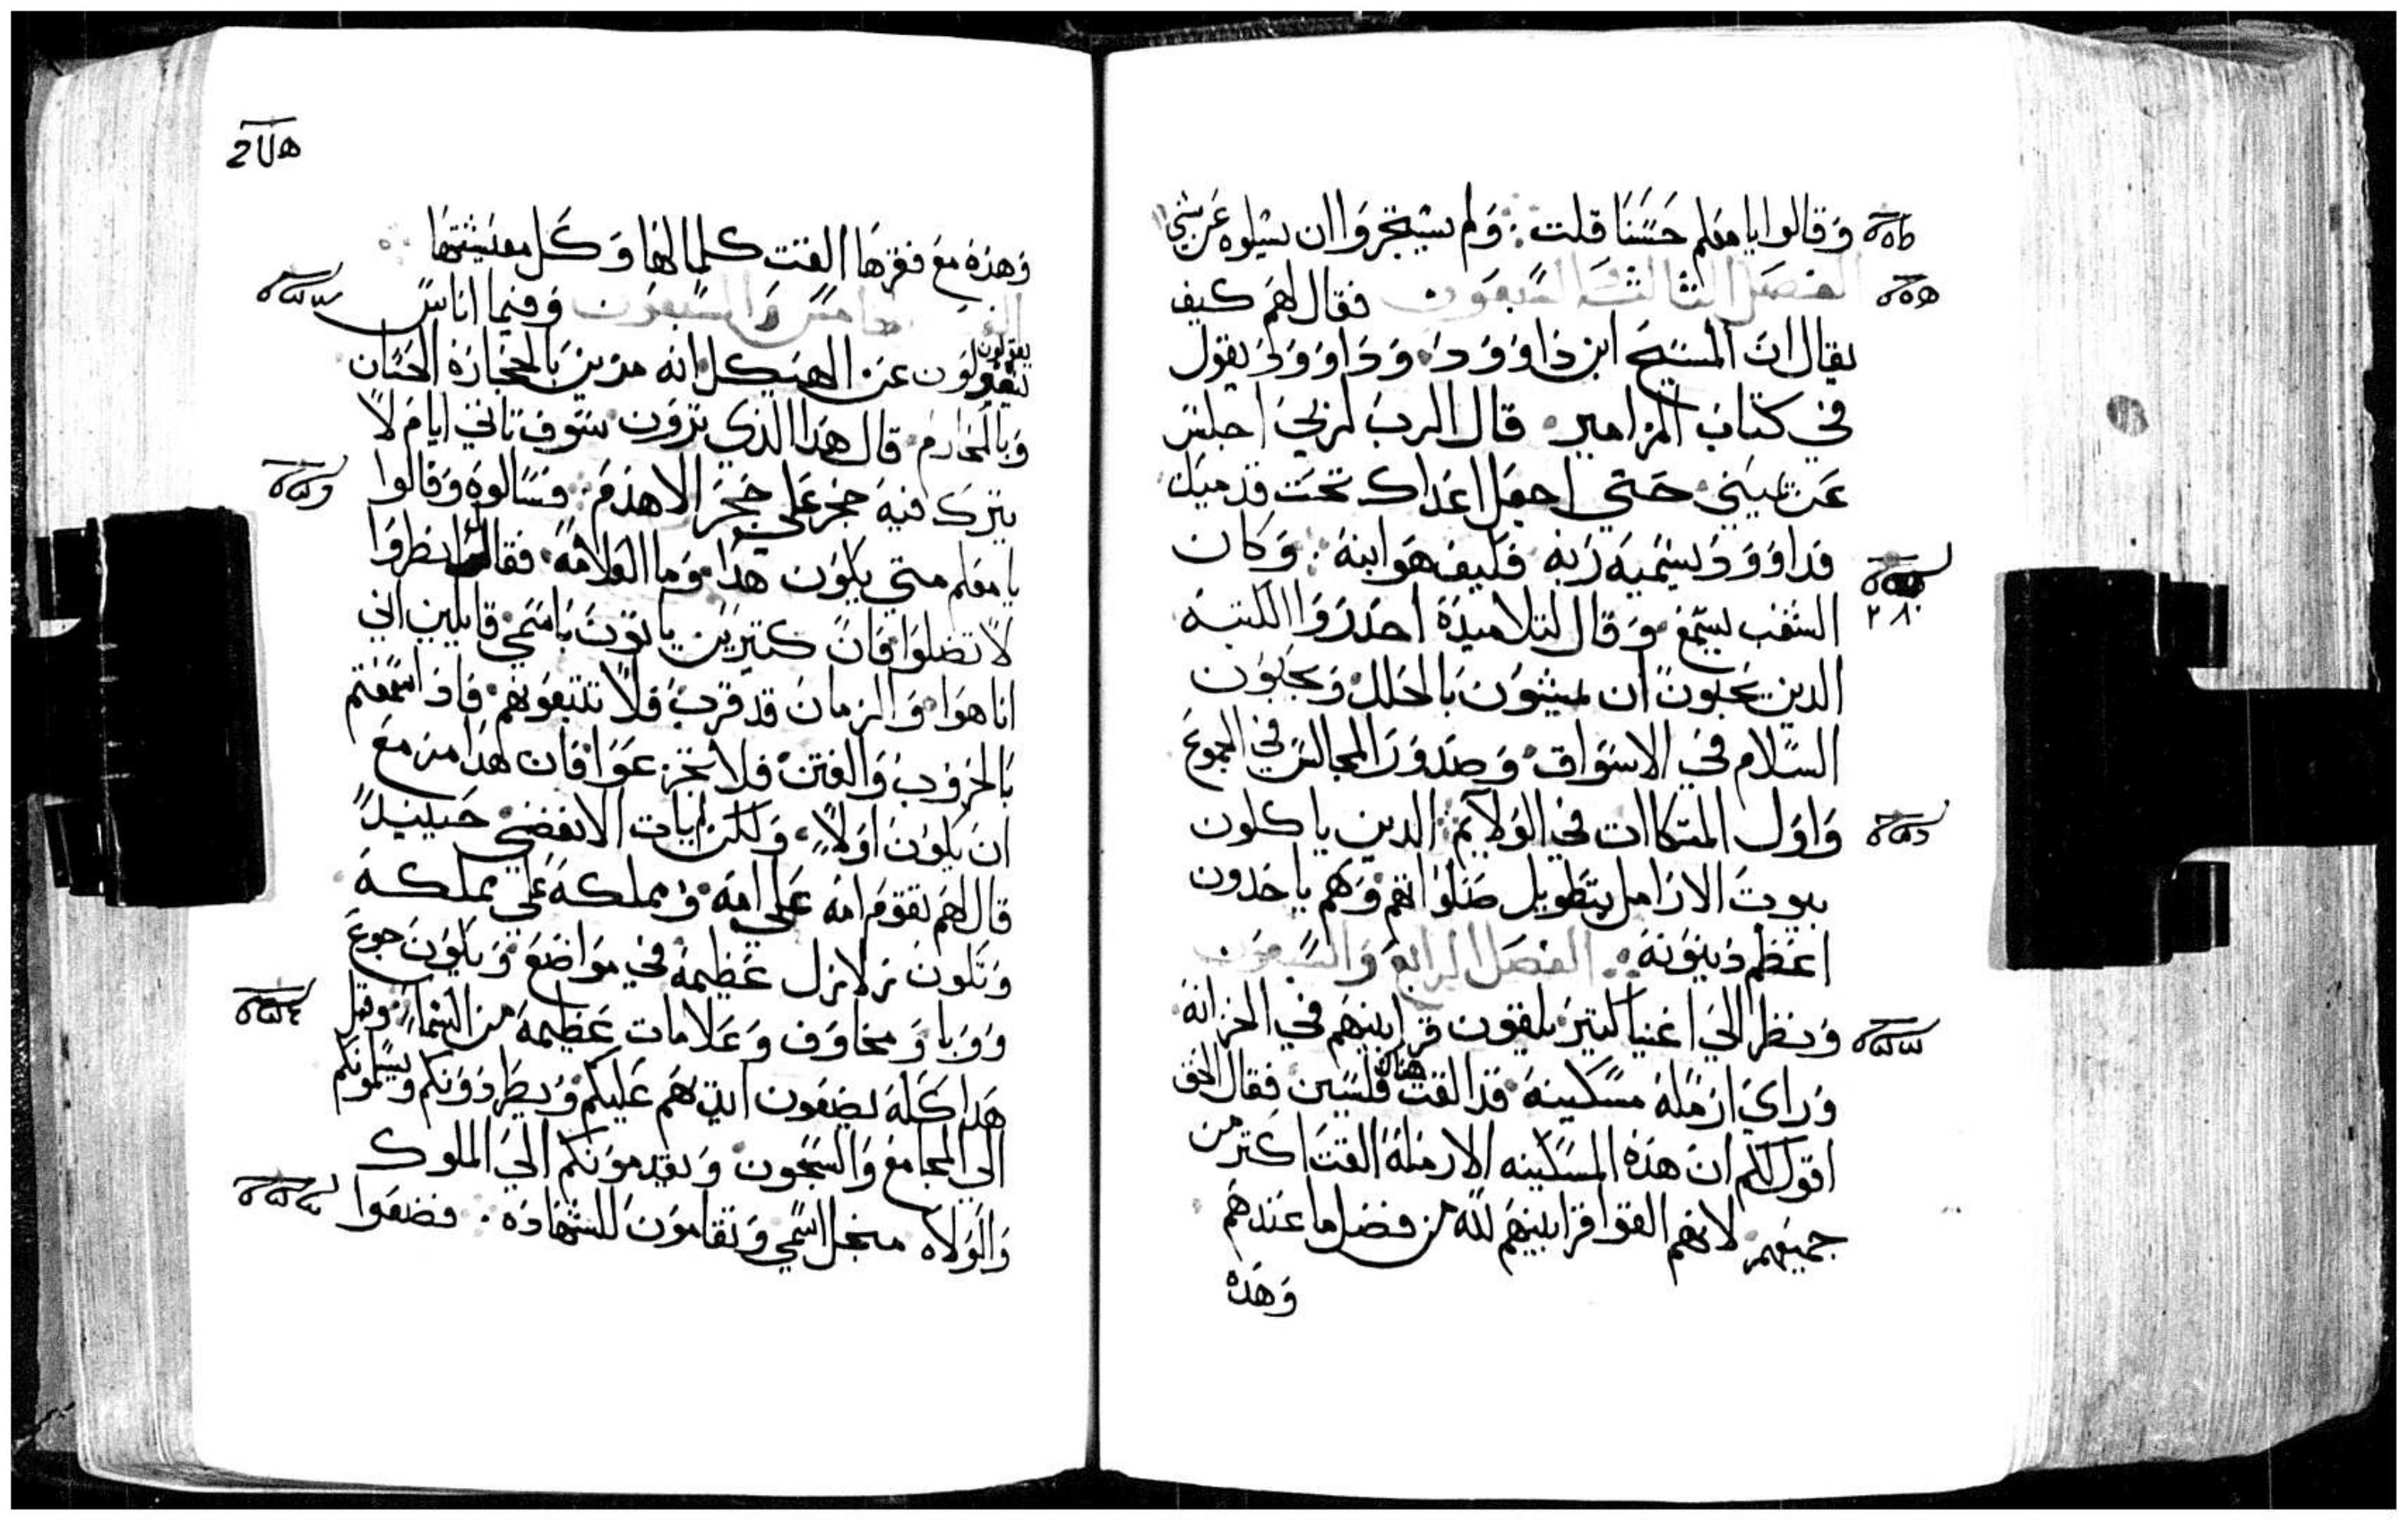 وقالوا يا معلم حسنا قلت ∴ ولم يستجروا ان يسلوه عن شي
الفصل الثالث والسبعون فقال لهم كيف
يقال ان المسيح ابن داوود وداوود يقول
في كتاب المزامير قال الرب لربي اجلس
عن يميني حتي اجعل اعداك تحت قدميك
فداوود يسميه ربه فكيف هو ابنه ∴ وكان
٢٨٠
الشعب يستمع وقال لتلاميذه احدروا الكتبه
الدين يحبون ان يمشون بالحلل ويحبون
السلام في الاسواق وصدور المجالس في الجموع
واول المتكاات في الولايم الدين ياكلون
بيوت الارامل بتطويل صلواتهم وهم ياخدون
اعظم دينونه ∴ الفصل الرابع والسبعون
ونظر الي اغنيا كتير يلقون قرابينهم في الخزانه
وراي ارمله مسكينه قد القت هناك فلسين فقال الحق
اقول لكم ان هذه المسكينه الارمله القت اكتر من
جميعهم لانهم القوا قرابينهم لله من فضل ما عندهم
وهده
وهذه مع فقرها القت كلما لها وكل معيشتها
الخامس والسبعون وفيما اناس
يقولون
يتقولون عن الهيكل انه مزين بالحجاره الحسان
وبالمحارم قال هذا الذي ترون سوف تاتي ايام لا
يترك فيه حجر علي حجر الا هدم فسالوه وقالوا
يا معلم متي يكون هذا وما العلامه فقال انظروا
لا تضلوا فان كتيرين ياتون باسمي قايلين اني
انا هوا والزمان قد قرب فلا تتبعوهم فادا سمعتم
بالحروب والفتن فلا تجزعوا فان هدا مزمع
ان يكون اولا ولكن لم يات الانقضي حينيد
قال لهم تقوم امه علي امه ومملكه علي مملكه
وتكون زلازل عظيمه في مواضع ويكون جوع
ووبا ومخاوف وعلامات عظيمه من السما وقبل
هدا كله يضعون ايديهم عليكم ويطردونكم ويسلمونكم
الي المجامع والسجون ويقدمونكم الي الملوك
والولاه من اجل اسمي وتقامون للشهاده ∴ فضعوا